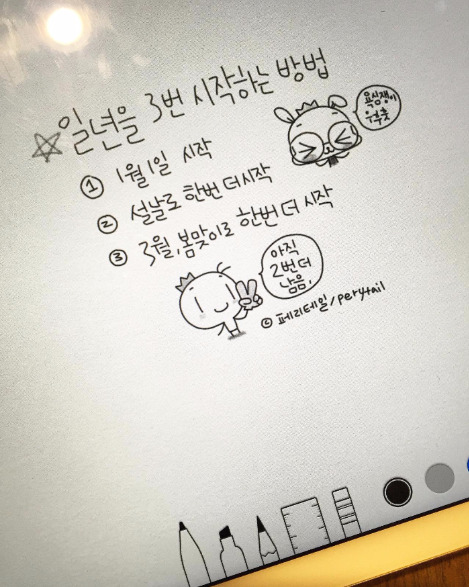 일년을 3번 시작하는 방법
① 1월1일 시작
② 설날로 한번 더 시작
③ 3월, 봄맞이로 한번 더 시작
욕심쟁이
우후훗
아직
2번 더
남음.
© 페리테일/perytail